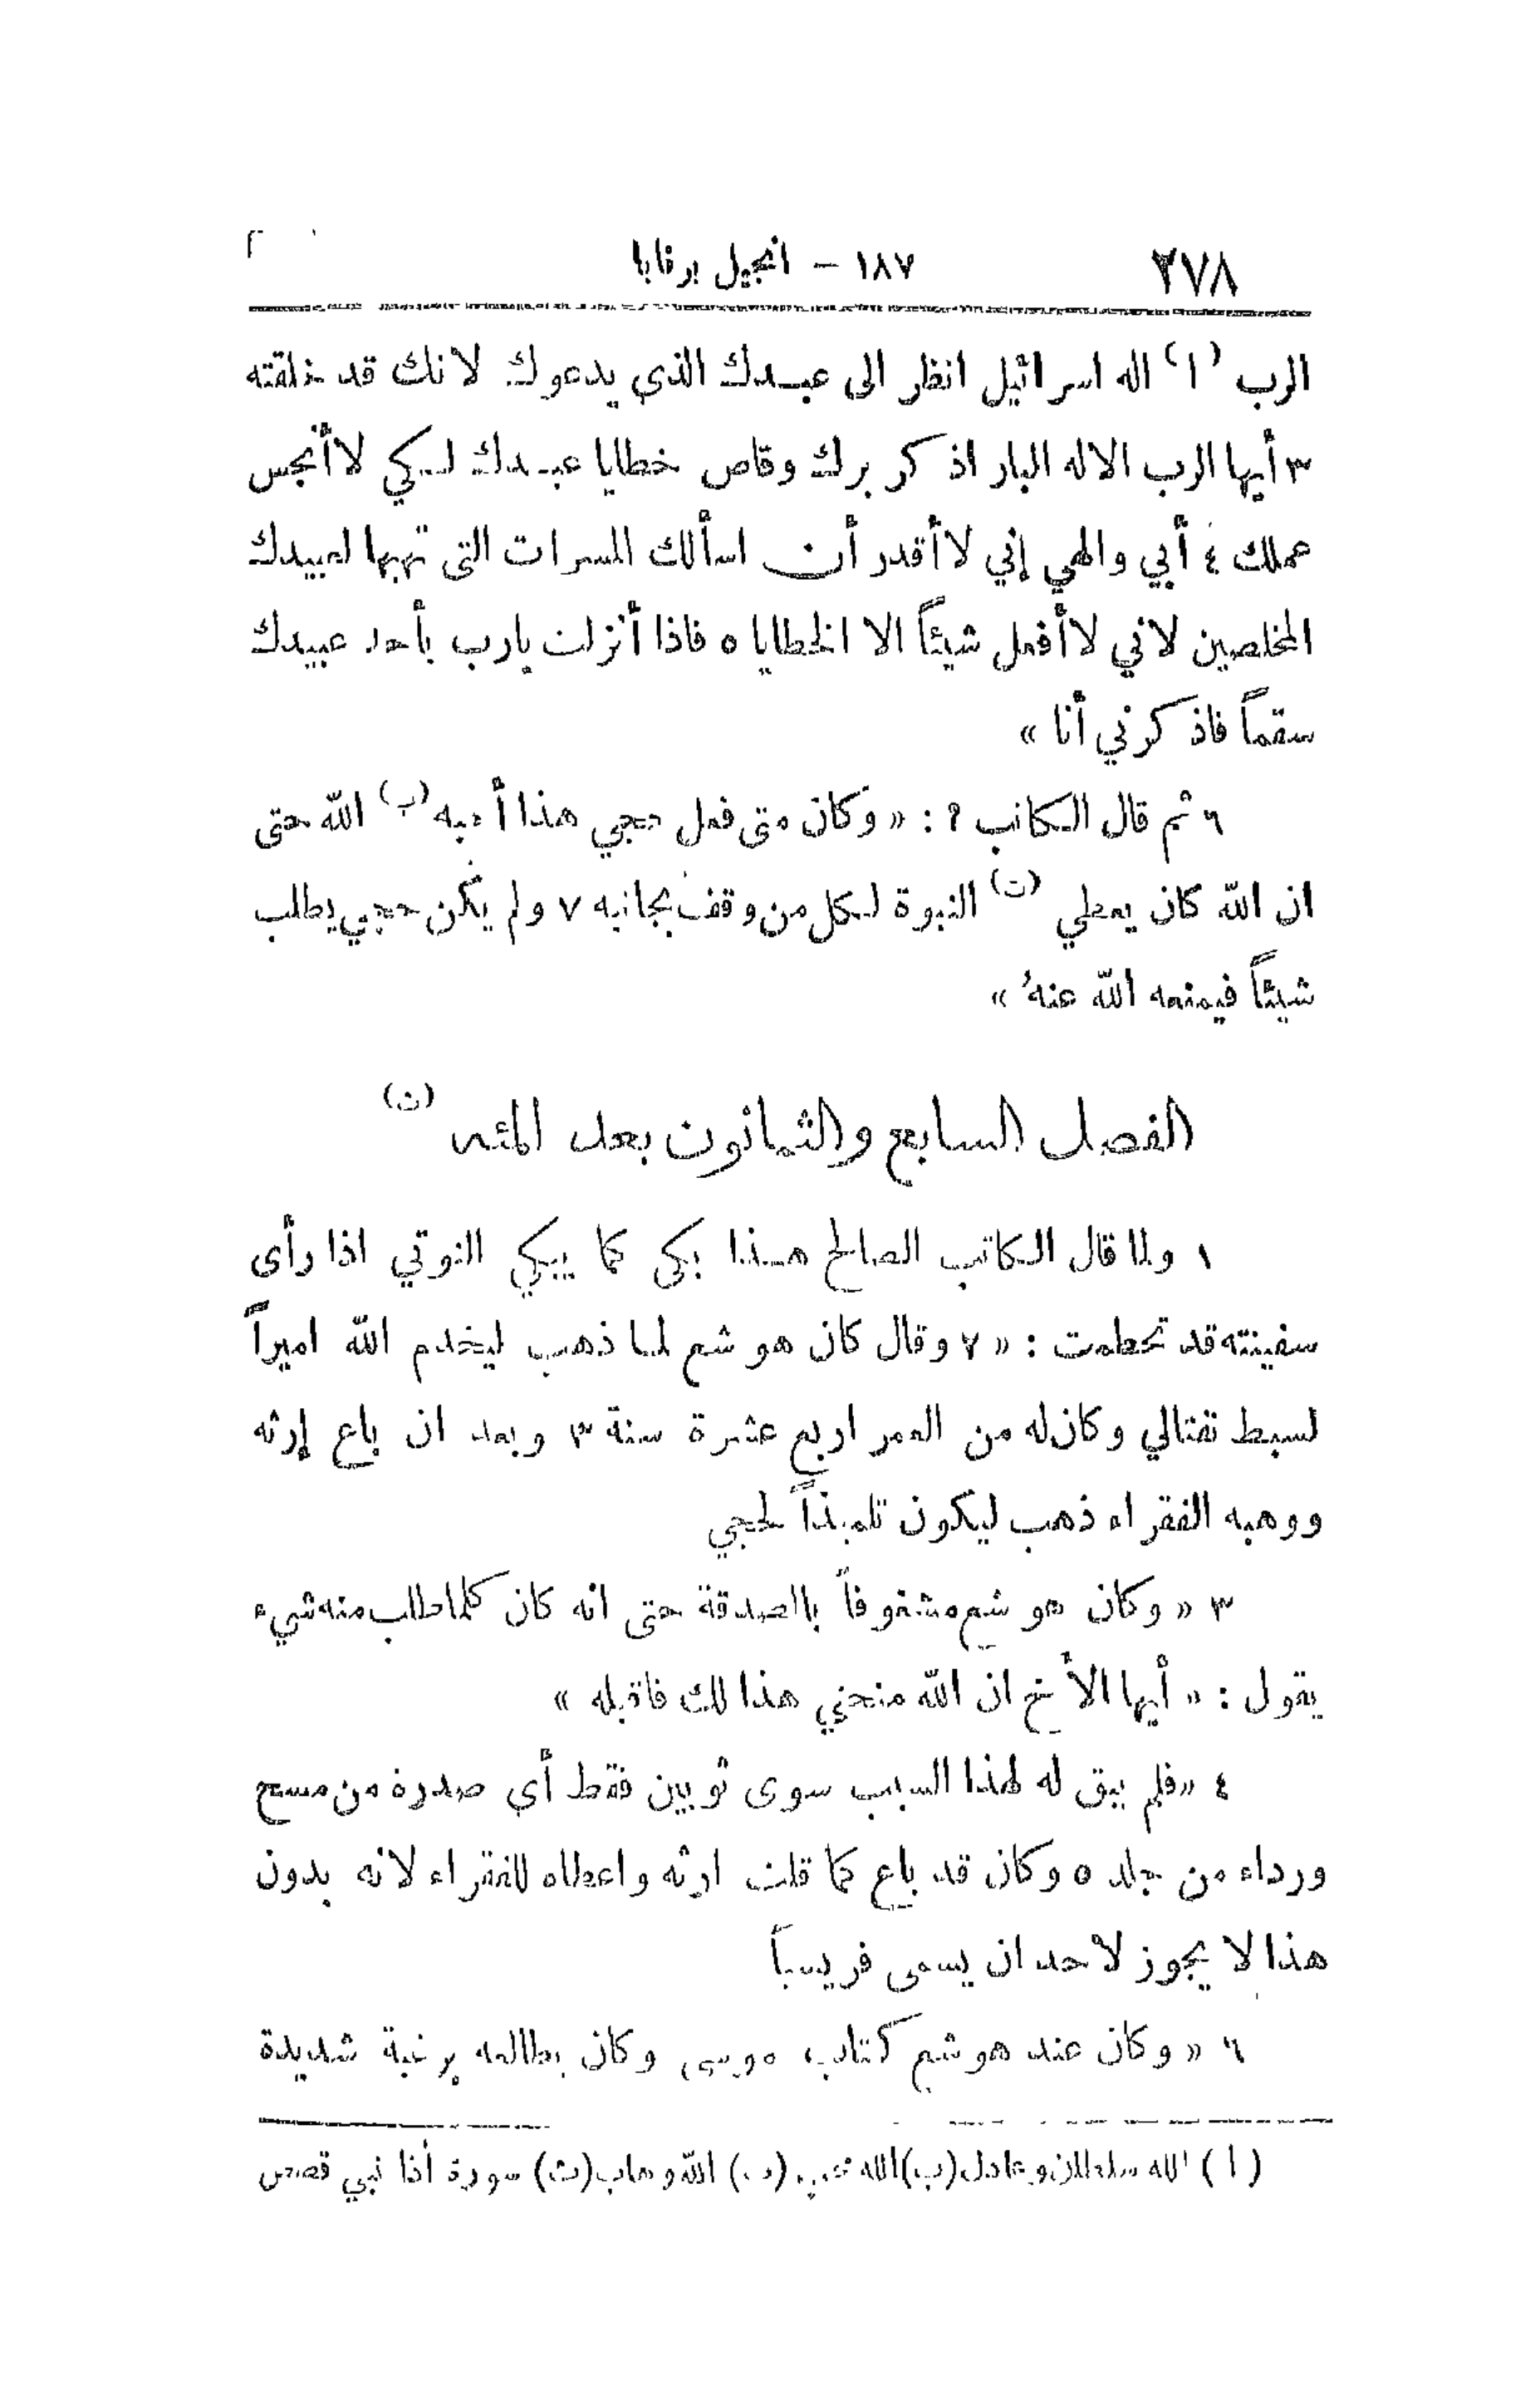 ٢٧٨ ١٨٧ – انجيل برنابا
الرب (ا) اله اسرائيل انظر الى عبدك الذي يدعوك لانك قد خلقته
٣ أيها الرب الاله البار اذكر برك وقاص خطايا عبدك لكي لا أنجس
عملك ٤ أبي والهي إني لا أقدر أن اسألك المسرات التي تهبها لعبيدك
المخلصين لاني لا أفعل شيئاً الا الخطايا ٥ فاذا أنزلت يارب بأحد عبيدك
سقماً فاذكرني أنا »
٦ ثم قال الكاتب ? : « وكان متى فعل حجي هذا أحبه (ب) الله حتى
ان الله كان يعطي (ت) النبوة لكل من وقف بجانبه ٧ ولم يكن حجي يطلب
شيئاً فيمنعه الله عنه »
الفصل السابع والثمانون بعد المئه (ث)
١ ولما قال الكاتب الصالح هذا بكى كما يبكي النوتي اذا رأى
سفينته قد تحطمت : « ٢ وقال كان هوشع لما ذهب ليخدم الله اميراً
لسبط نفتالي وكان له من العمر اربع عشرة سنة ٣ وبعد ان باع إرثه
ووهبه الفقراء ذهب ليكون تلميذاً لحجي
٣ « وكان هوشع مشغوفاً بالصدقة حتى انه كان كلما طلب منه شيء
يقول : « أيها الأخ ان الله منحني هذا لك فاقبله »
٤ « فلم يبق له لهذا السبب سوى ثوبين فقط أي صدرة من مسح
ورداء من جلد ٥ وكان قد باع كما قلت ارثه واعطاه للفقراء لانه بدون
هذا لا يجوز لاحد ان يسمى فريسياً
٦ « وكان عند هوشع كتاب موسى وكان يطالعه برغبة شديدة
(ا) الله سلطان وعادل (ب) الله محب (ت) الله وهاب (ث) سورة أذا نبي قصص